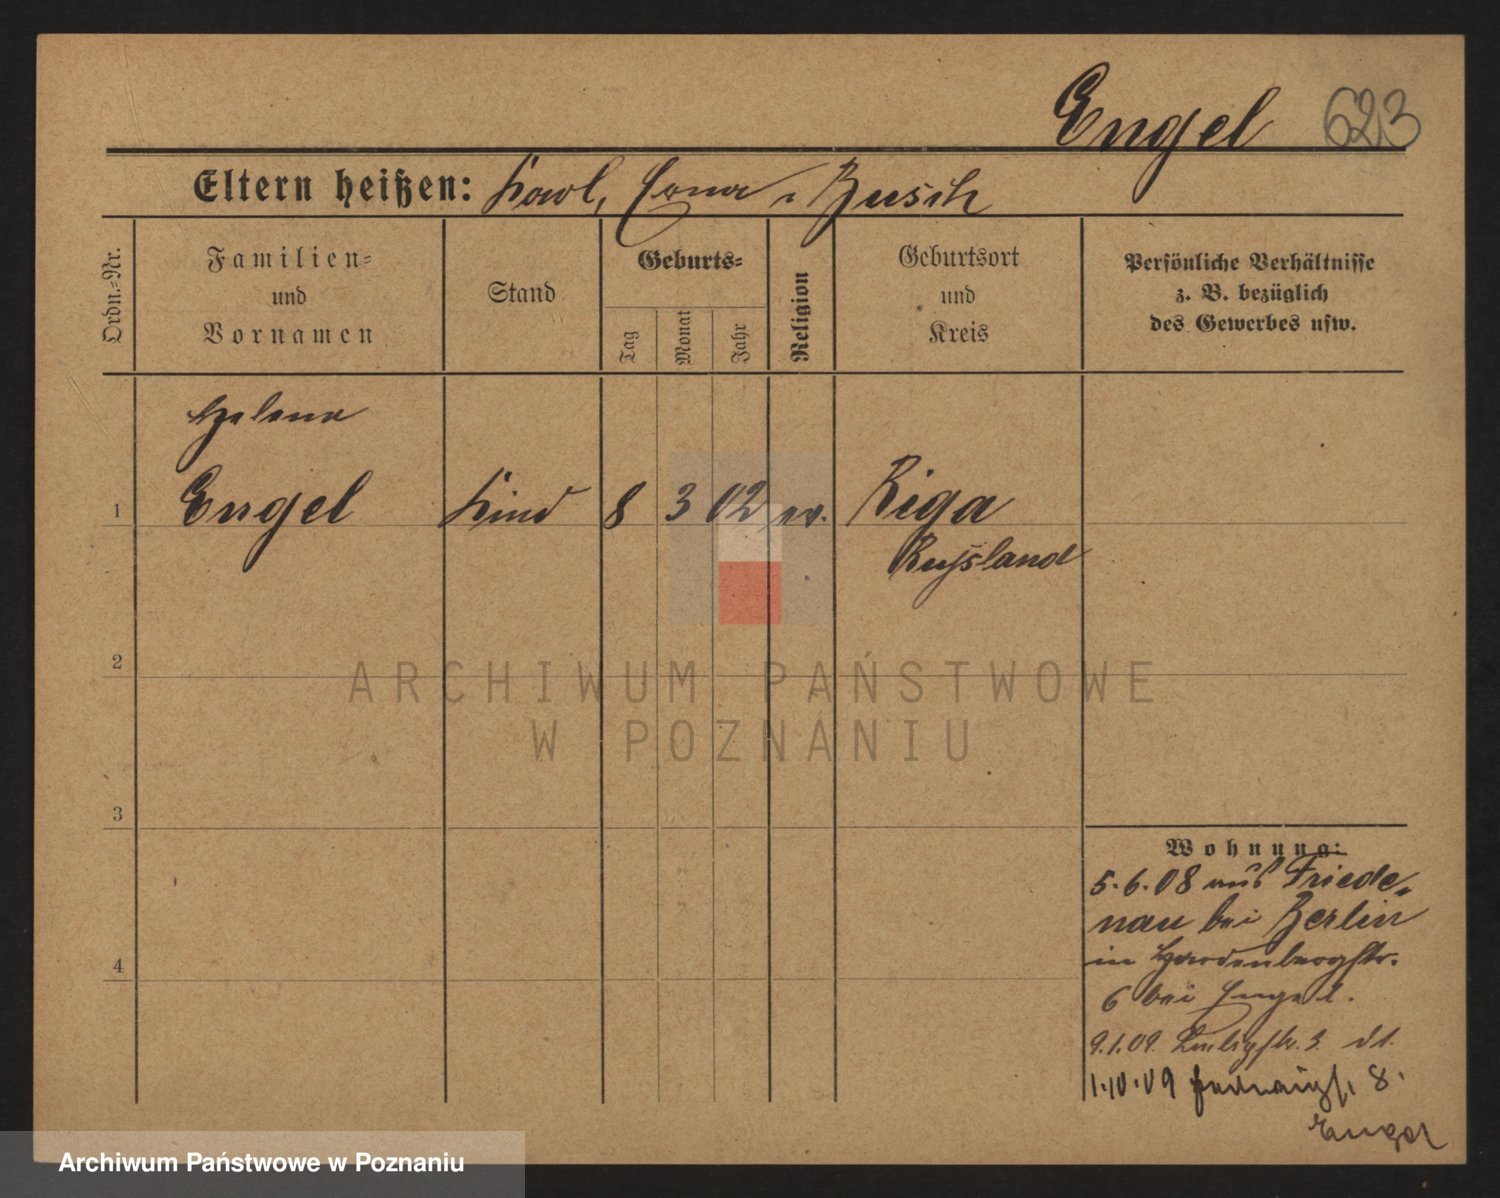 Engel 623
Eltern heißen: Karl, Erna, Busch
Ordn.-Nr.
Familien-
und
Vornamen
Stand
Geburts-
Tag
Monat
Jahr
Religion
Geburtsort
und
Kreis
Persönliche Verhältnisse
z. B. bezüglich
des Gewerbes usw.
Helene
1 Engel Kind 8 3 02 ev. Riga
Russland
2
3
4
Wohnung:
5.6.08 aus Friede-
nau bei Berlin
in Hardenbergstr.
6 bei Engel.
9.1.09 3. dt.
1.10.09 8.
Engel
ARCHIWUM PAŃSTWOWE
W POZNANIU
Archiwum Państwowe w Poznaniu